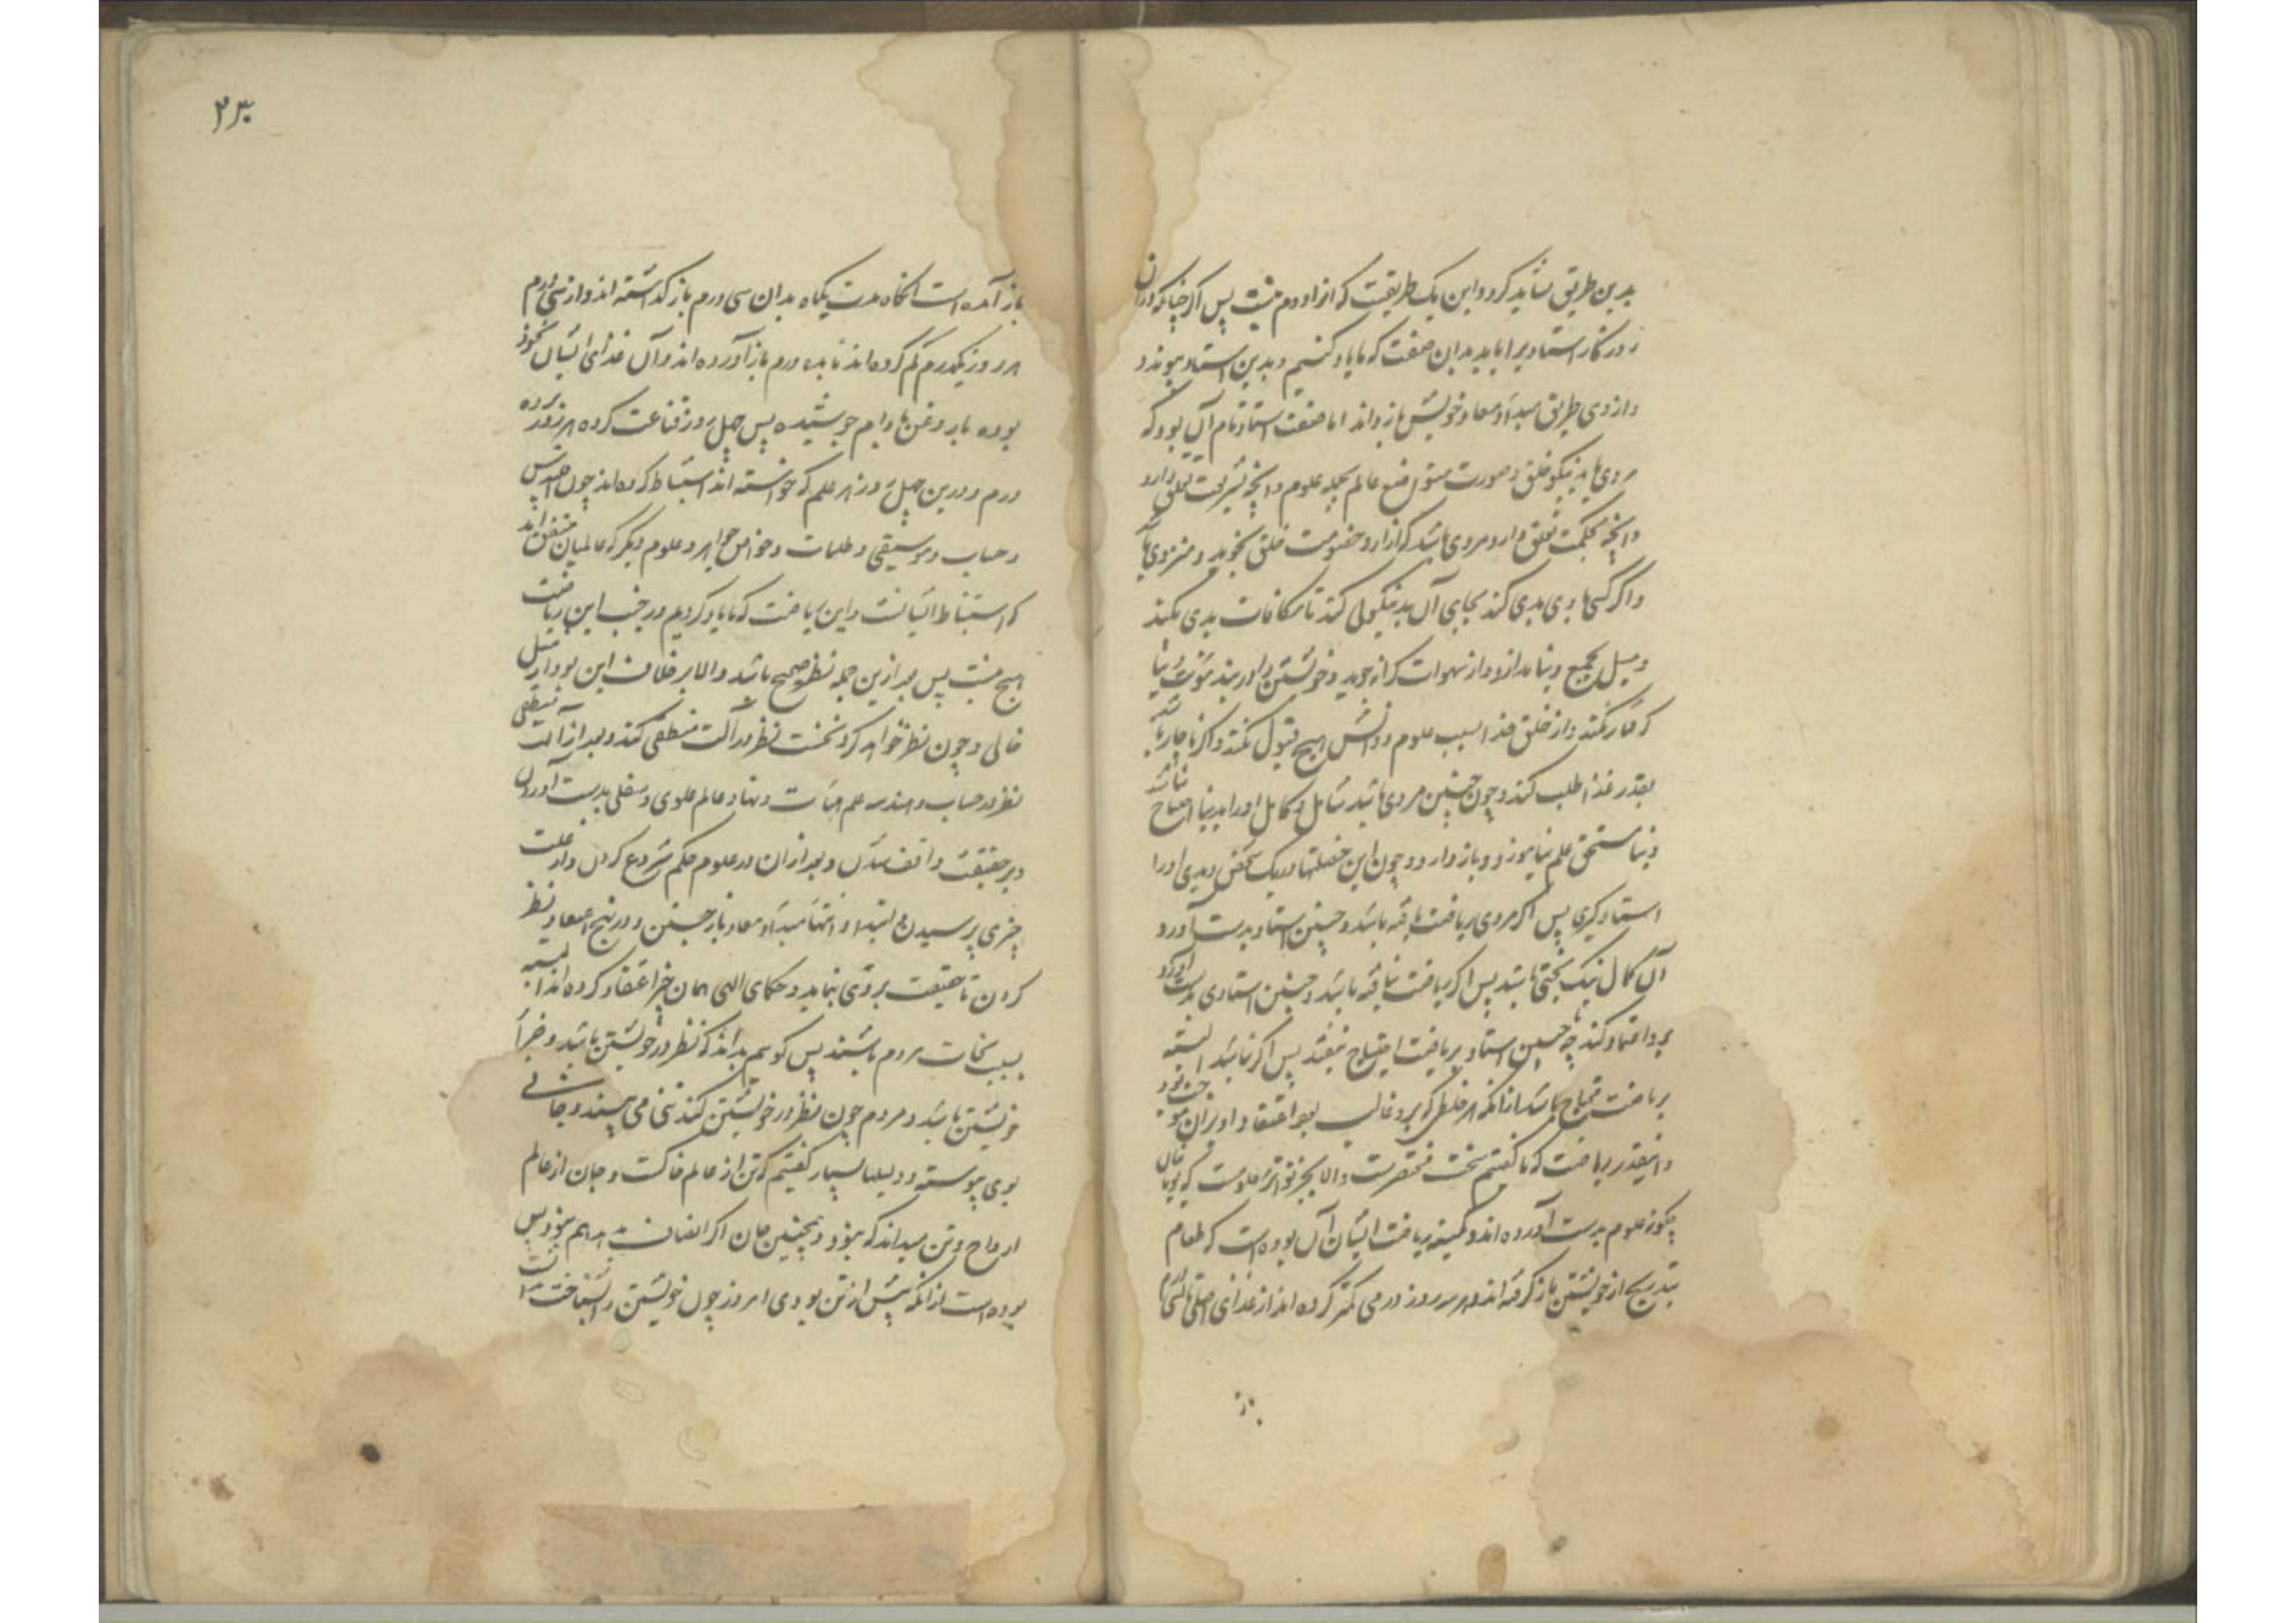 بدین طریق نشاید کرد و این یک طریقست که از او دوم نیست پس اگر چنانکه در آن
روزگار استادی را باید بدان صفت که ما یاد کنیم و بدین استاد پیوندد
و از وی طریق مبدأ و معاد خویش باز داند اما صفت استاد تمام آن بود که
مردی باید نیکو خلق و صورت عالم بجمله علوم و آنچه بشریعت تعلق دارد
و آنچه بحکمت تعلق دارد و مردی باشد که آزار و خصومت خلق نجوید و منزوی باشد
و اگر کسی با وی بدی کند بجای آن بد نیکوئی کند تا مکافات بدی نکند
و میل بجمع دنیا ندارد و از شهوات کرانه جوید و خویشتن را در بند مؤنت دنیا
گرفتار نکند و از خلق غذا بسبب علوم و دانش هیچ قبول نکند و اگر ناچار باشد
بقدر غذا طلب کند و چون چنین مردی باشد شامل و کامل او را بدنیا احتیاج نباشد
و نامستحق علم نیاموزد و باز دارد و چون این خصلتها در یک شخص دیدی او را
استاد گیری پس اگر مردی ریاضت یافته باشد و چنین استاد بدست آورد
آن کمال نیک بختی باشد پس اگر ریاضت نیافته باشد و چنین استادی بدست آورد
برو اعتماد کند چه با چنین استاد بریاضت احتیاج نیفتد پس اگر نباشد البته
بریاضت محتاج باشد از آنکه هر خلطی که برو غالب بود اعتقاد او بران موجب بود
و اینقدر ریاضت که ما گفتیم سخت مختصرست و الا بجز تواتر معلومست که یونانیان
چگونه علوم بدست آورده‌اند و کمینه ریاضت ایشان آن بوده است که طعام
بتدریج از خویشتن باز گرفته‌اند و هر سه روز درمی کمتر کرده‌اند از غذای اصلی تا بسی درم
باز
۲۳۰
باز آمده است آنگاه مدت یکماه بدان سی درم باز گذاشته‌اند و از سی درم
هر روز یکدرم کم کرده‌اند تا بده درم باز آورده‌اند و آن غذای ایشان نخود
بوده با روغن بادام جوشیده پس چهل روز قناعت کرده هر روز بده
درم و درین چهل روز هر علم که خواسته‌اند استنباط کرده‌اند چون اقلیدس
و حساب و موسیقی و طلسمات و خواص جواهر و علوم دیگر که عالمیان متفق‌اند
که استنباط ایشانست و این ریاضت که ما یاد کردیم در جنب این ریاضت
هیچ نیست پس بعد ازین جمله نظر صحیح باشد و الا بر خلاف این بود از میل
خالی و چون نظر خواهد کرد نخست نظر در آلت منطقی کند و بعد از آلت منطقی
نظر در حساب و هندسه علم هیأت و نهاد عالم علوی و سفلی بدست آوردن
و بر حقیقت واقف شدن و بعد از آن در علوم حکم شروع کردن و از علت
چیزی پرسیدن و ابتدا و انتها مبدأ و معاد باز جستن و در نهج اعتقاد نظر
کردن تا حقیقت بر وی بنماید و حکمای الهی همان چیز اعتقاد کرده‌اند البته
بسبب نجات مردم باشند پس گوییم بدانکه نظر در خویشتن باشد و خبر از
خویشتن باشد و مردم چون نظر در خویشتن کند تنی می بیند و جانی
بوی پیوسته و دلیلها بسیار گفتیم که تن از عالم خاکست و جان از عالم
ارواح و تن میداند که نبود و همچنین جان اگر انصاف بدهد هم نبود پس
بوده است از آنکه پیش از تن بودی امروز چون خویشتن را شناختست